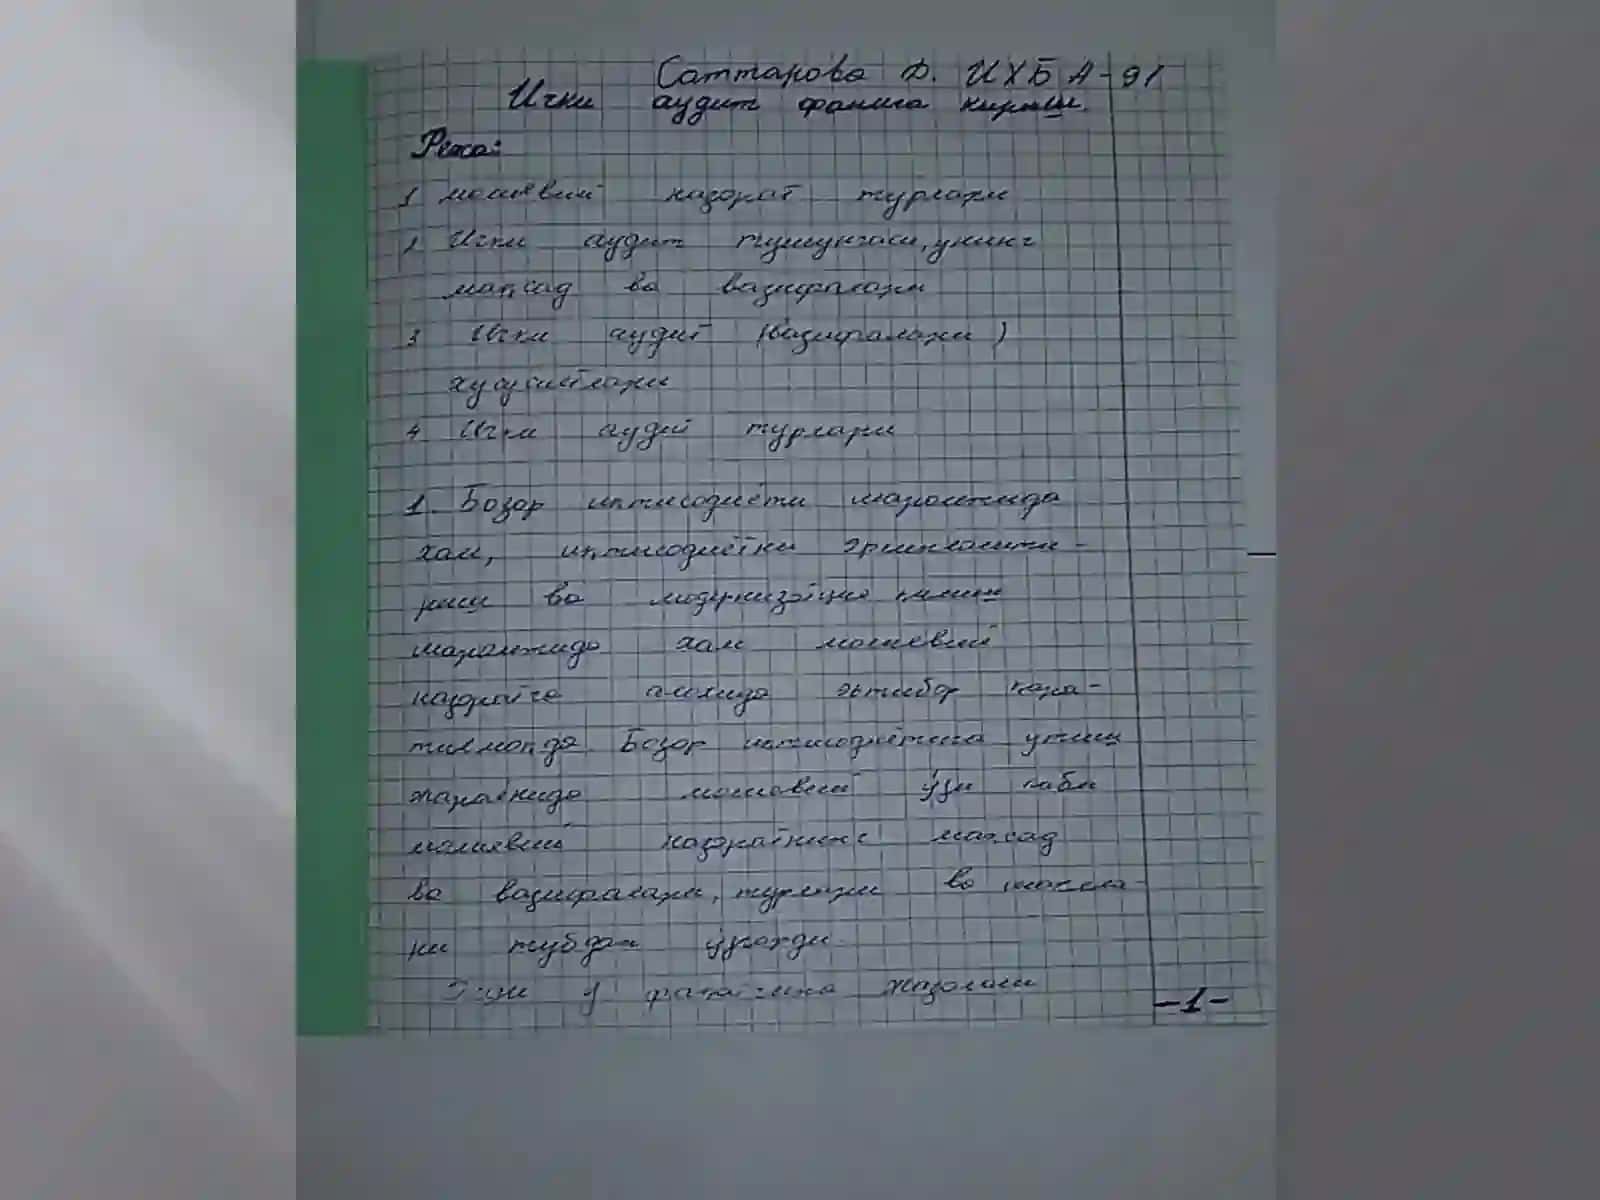 Саттарова Д. ИХБА-91
Ички аудит фанига кириш.
Режа:
1 молиявий назорат турлари
2 Ички аудит тушунчаси, унинг
мақсад ва вазифалари
3 Ички аудит (вазифалари)
хусусиятлари
4 Ички аудит турлари
1. Бозор иқтисодиёти шароитида
хам, иқтисодиётни эркинлашти-
риш ва модернизация қилиш
шароитида хам молиявий
назоратга алохида эътибор қара-
тилмоқда. Бозор иқтисодиётига ўтиш
жараёнида молиявий ўзи каби
молиявий назоратнинг мақсад
ва вазифалари, турлари ва шакллa-
ри тубдан ўзгарди.
у фақатгина жазолаш
-1-